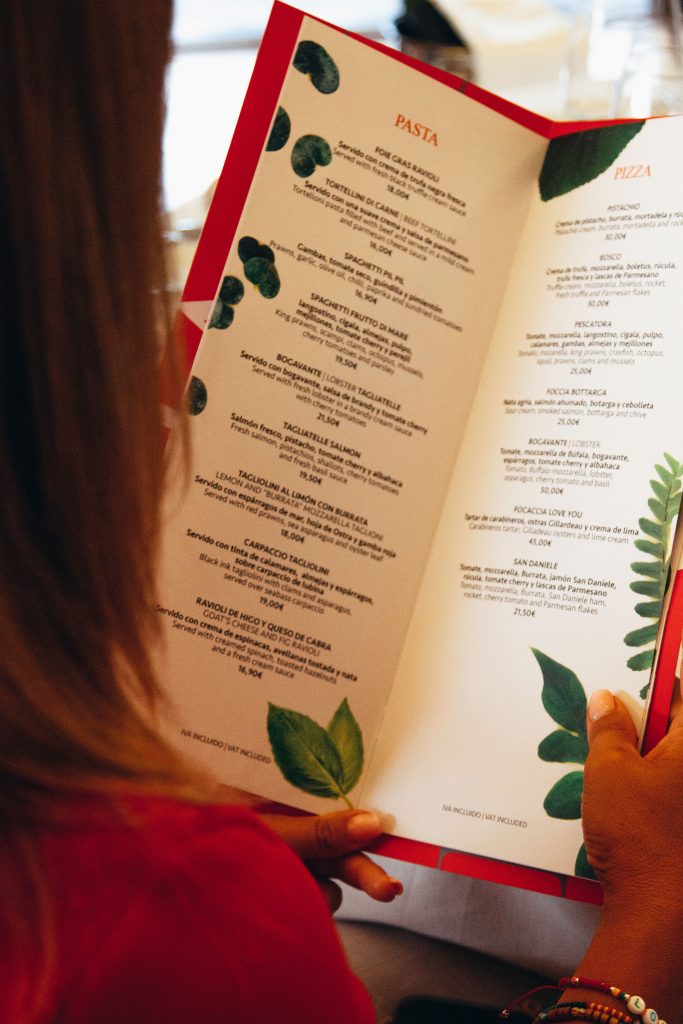 PASTA
FOIE GRAS RAVIOLI
Servido con crema de trufa negra fresca
Served with fresh black truffle cream sauce
18,00€
TORTELLINI DI CARNE | BEEF TORTELLINI
Servido con una suave crema y salsa de parmesano
Tortellini pasta filled with beef and served in a mild cream
and parmesan cheese sauce
16,00€
SPAGHETTI PIL PIL
Gambas, tomate seco, guindilla y pimientón
Prawns, garlic, olive oil, chilli, paprika and sundried tomatoes
16,90€
SPAGHETTI FRUTTO DI MARE
langostino, cigala, almejas, pulpo,
mejillones, tomate cherry y perejil
King prawns, scampi, clams, octopus, mussels,
cherry tomatoes and parsley
19,50€
BOGAVANTE | LOBSTER TAGLIATELLE
Servido con bogavante, salsa de brandy y tomate cherry
Served with fresh lobster in a brandy cream sauce
with cherry tomatoes
21,50€
TAGLIATELLE SALMON
Salmón fresco, pistacho, tomate cherry y albahaca
Fresh salmon, pistachios, shallots, cherry tomatoes
and fresh basil sauce
19,50€
TAGLIOLINI AL LIMÓN CON BURRATA
LEMON AND "BURRATA" MOZZARELLA TAGLIONI
Servido con espárragos de mar, hoja de Ostra y gamba roja
Served with red prawns, sea asparagus and oyster leaf
18,00€
CARPACCIO TAGLIOLINI
Servido con tinta de calamares, almejas y espárragos,
sobre carpaccio de lubina
Black ink tagliolini with clams and asparagus,
served over seabass carpaccio
19,00€
RAVIOLI DE HIGO Y QUESO DE CABRA
GOAT'S CHEESE AND FIG RAVIOLI
Servido con crema de espinacas, avellanas tostada y nata
Served with creamed spinach, toasted hazelnuts
and a fresh cream sauce
16,90€
IVA INCLUIDO | VAT INCLUDED
PIZZA
PISTACHIO
Crema de pistacho, burrata, mortadela y
Pistachio cream, burrata, mortadela and
30,00€
BOSCO
Crema de trufa, mozzarella, boletus, rúcula,
trufa fresca y lascas de Parmesano
Truffle cream, mozzarella, boletus, rocket,
fresh truffle and Parmesan flakes
30,00€
PESCATORA
Tomate, mozzarella, langostino, cigala, pulpo,
calamares, gambas, almejas y mejillones
Tomato, mozzarella, king prawns, crayfish, octopus,
squid, prawns, clams and mussels
25,00€
FOCCIA BOTTARGA
Nata agria, salmón ahumado, botarga y cebolleta
Sour cream, smoked salmon, bottarga and chive
25,00€
BOGAVANTE | LOBSTER
Tomate, mozzarella de Búfala, bogavante,
espárragos, tomate cherry y albahaca
Tomato, Buffalo mozzarella, lobster,
asparagus, cherry tomato and basil
50,00€
FOCACCIA LOVE YOU
Tartar de carabineros, ostras Gillardeau y crema de lima
Carabineros tartar, Gilladeau oysters and lime cream
45,00€
SAN DANIELE
Tomate, mozzarella, Burrata, Jamón San Daniele,
rúcula, tomate cherry y lascas de Parmesano
Tomato, mozzarella, Burrata, San Daniele ham,
rocket, cherry tomato and Parmesan flakes
21,50€
IVA INCLUIDO | VAT INCLUDED